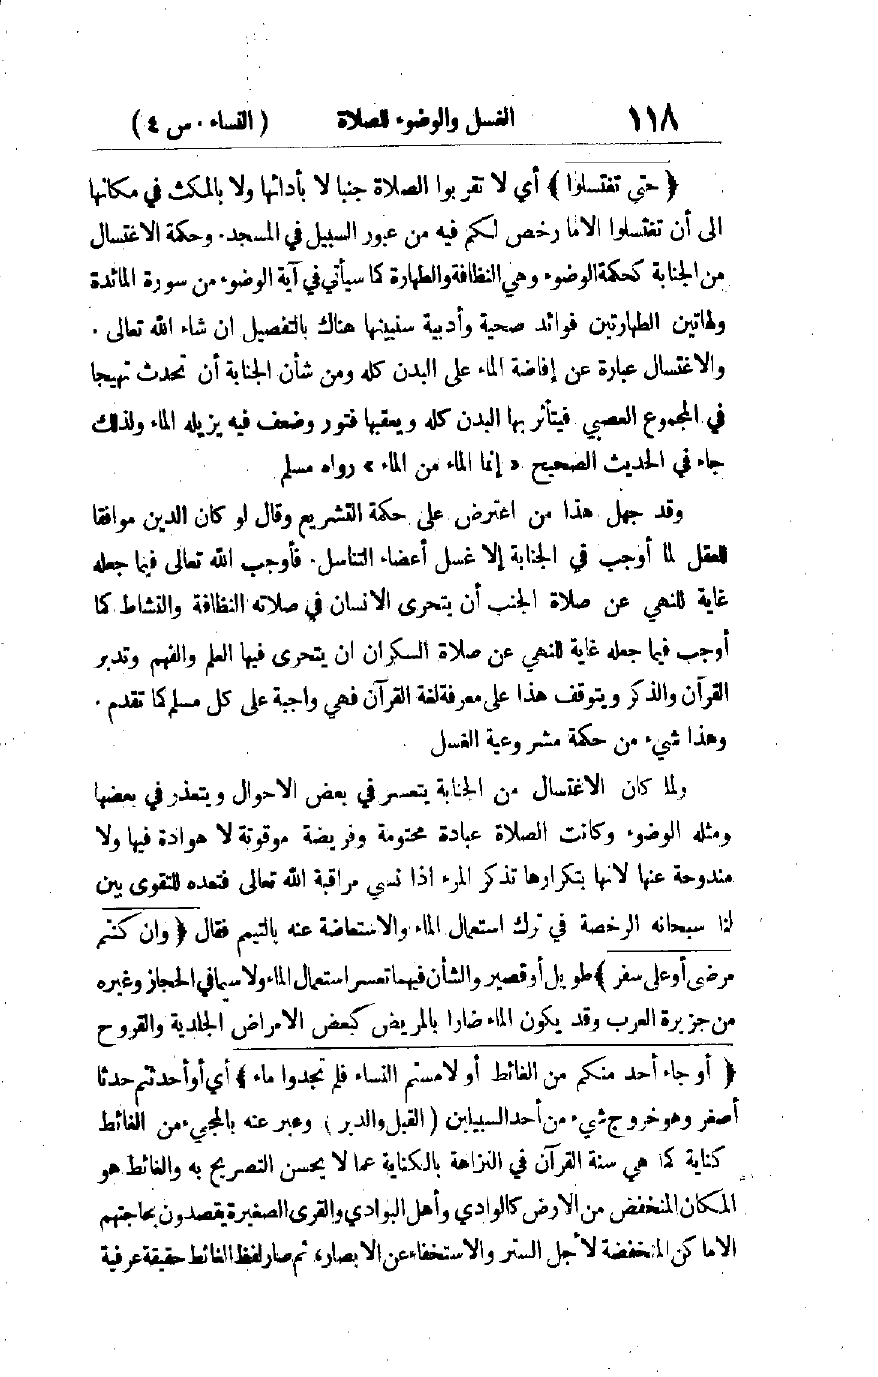 ١١٨ الغسل والوضوء للصلاة ( النساء . س ٤ )
﴿ حتى تغتسلوا ﴾ أي لا تقربوا الصلاة جنبا لا بأدائها ولا بالمكث في مكانها
الى أن تغتسلوا الا ما رخص لكم فيه من عبور السبيل في المسجد. وحكمة الاغتسال
من الجنابة كحكمة الوضوء وهي النظافة والطهارة كما سيأتي في آية الوضوء من سورة المائدة
ولهاتين الطهارتين فوائد صحية وأدبية سنبينها هناك بالتفصيل ان شاء الله تعالى .
والاغتسال عبارة عن إفاضة الماء على البدن كله ومن شأن الجنابة أن تحدث تهيجا
في المجموع العصبي فيتأثر بها البدن كله ويعقبها فتور وضعف فيه يزيله الماء ولذلك
جاء في الحديث الصحيح « إنما الماء من الماء » رواه مسلم
وقد جهل هذا من اعترض على حكمة التشريع وقال لو كان الدين موافقا
للعقل لما أوجب في الجنابة إلا غسل أعضاء التناسل. فأوجب الله تعالى فيما جعله
غاية للنهي عن صلاة الجنب أن يتحرى الانسان في صلاته النظافة والنشاط كما
أوجب فيما جعله غاية للنهي عن صلاة السكران ان يتحرى فيها العلم والفهم وتدبر
القرآن والذكر ويتوقف هذا على معرفة لغة القرآن فهي واجبة على كل مسلم كما تقدم .
وهذا شيء من حكمة مشروعية الغسل
ولما كان الاغتسال من الجنابة يتعسر في بعض الاحوال ويتعذر في بعضها
ومثله الوضوء وكانت الصلاة عبادة محتومة وفريضة موقوتة لا هوادة فيها ولا
مندوحة عنها لانها بتكرارها تذكر المرء اذا نسي مراقبة الله تعالى فتعده للتقوى بين
لنا سبحانه الرخصة في ترك استعمال الماء والاستعاضة عنه بالتيمم فقال ﴿ وان كنتم
مرضى أو على سفر ﴾ طويل أو قصير والشأن فيهما تعسر استعمال الماء ولا سيما في الحجاز وغيره
من جزيرة العرب وقد يكون الماء ضارا بالمريض كبعض الامراض الجلدية والقروح
﴿ أو جاء أحد منكم من الغائط أو لامستم النساء فلم تجدوا ماء ﴾ أي أو أحدثتم حدثا
أصغر وهو خروج شيء من أحد السبيلين ( القبل والدبر ) وعبر عنه بالمجيء من الغائط
كناية كما هي سنة القرآن في النزاهة بالكناية عما لا يحسن التصريح به والغائط هو
المكان المنخفض من الارض كالوادي وأهل البوادي والقرى الصغيرة يقصدون بحاجتهم
الاماكن المنخفضة لأجل الستر والاستخفاء عن الابصار، ثم صار لفظ الغائط حقيقة عرفية